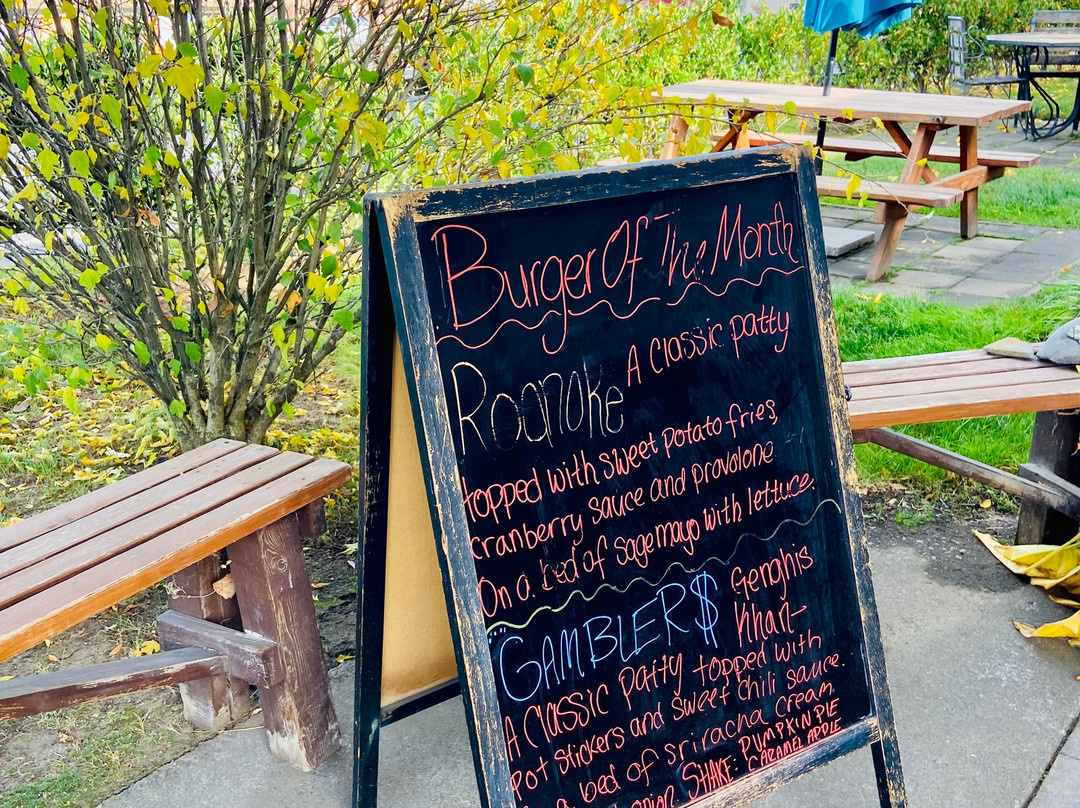 Burger Of The Month
Roanoke A classic patty
topped with sweet potato fries,
cranberry sauce and provolone
On a bed of sage mayo with lettuce.
GAMBLER$ Genghis
Khan-
A classic patty topped with
Pot stickers and sweet chili sauce.
bed of sriracha cream
onion. SHAKE: PUMPKIN PIE
CARAMEL APPLE